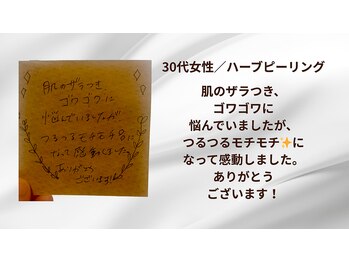 肌のザラつき
ゴワゴワに
悩んでいましたが
つるってモチモチ
なって感動しました
ありがとう
ございます!
30代女性／ハーブピーリング
肌のザラつき、
ゴワゴワに
悩んでいましたが、
つるつるモチモチ✨に
なって感動しました。
ありがとう
ございます！